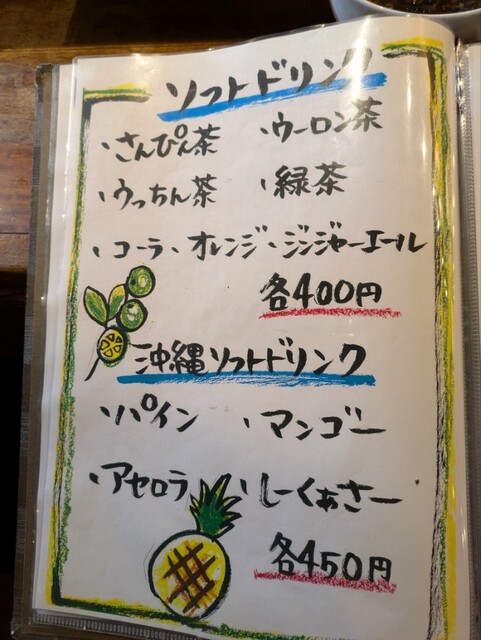 ソフトドリンク
・さんぴん茶 ・ウーロン茶
・うっちん茶 ・緑茶
・コーラ・オレンジ・ジンジャーエール
各400円
沖縄ソフトドリンク
・パイン ・マンゴー
・アセロラ ・しーくぁさー
各450円